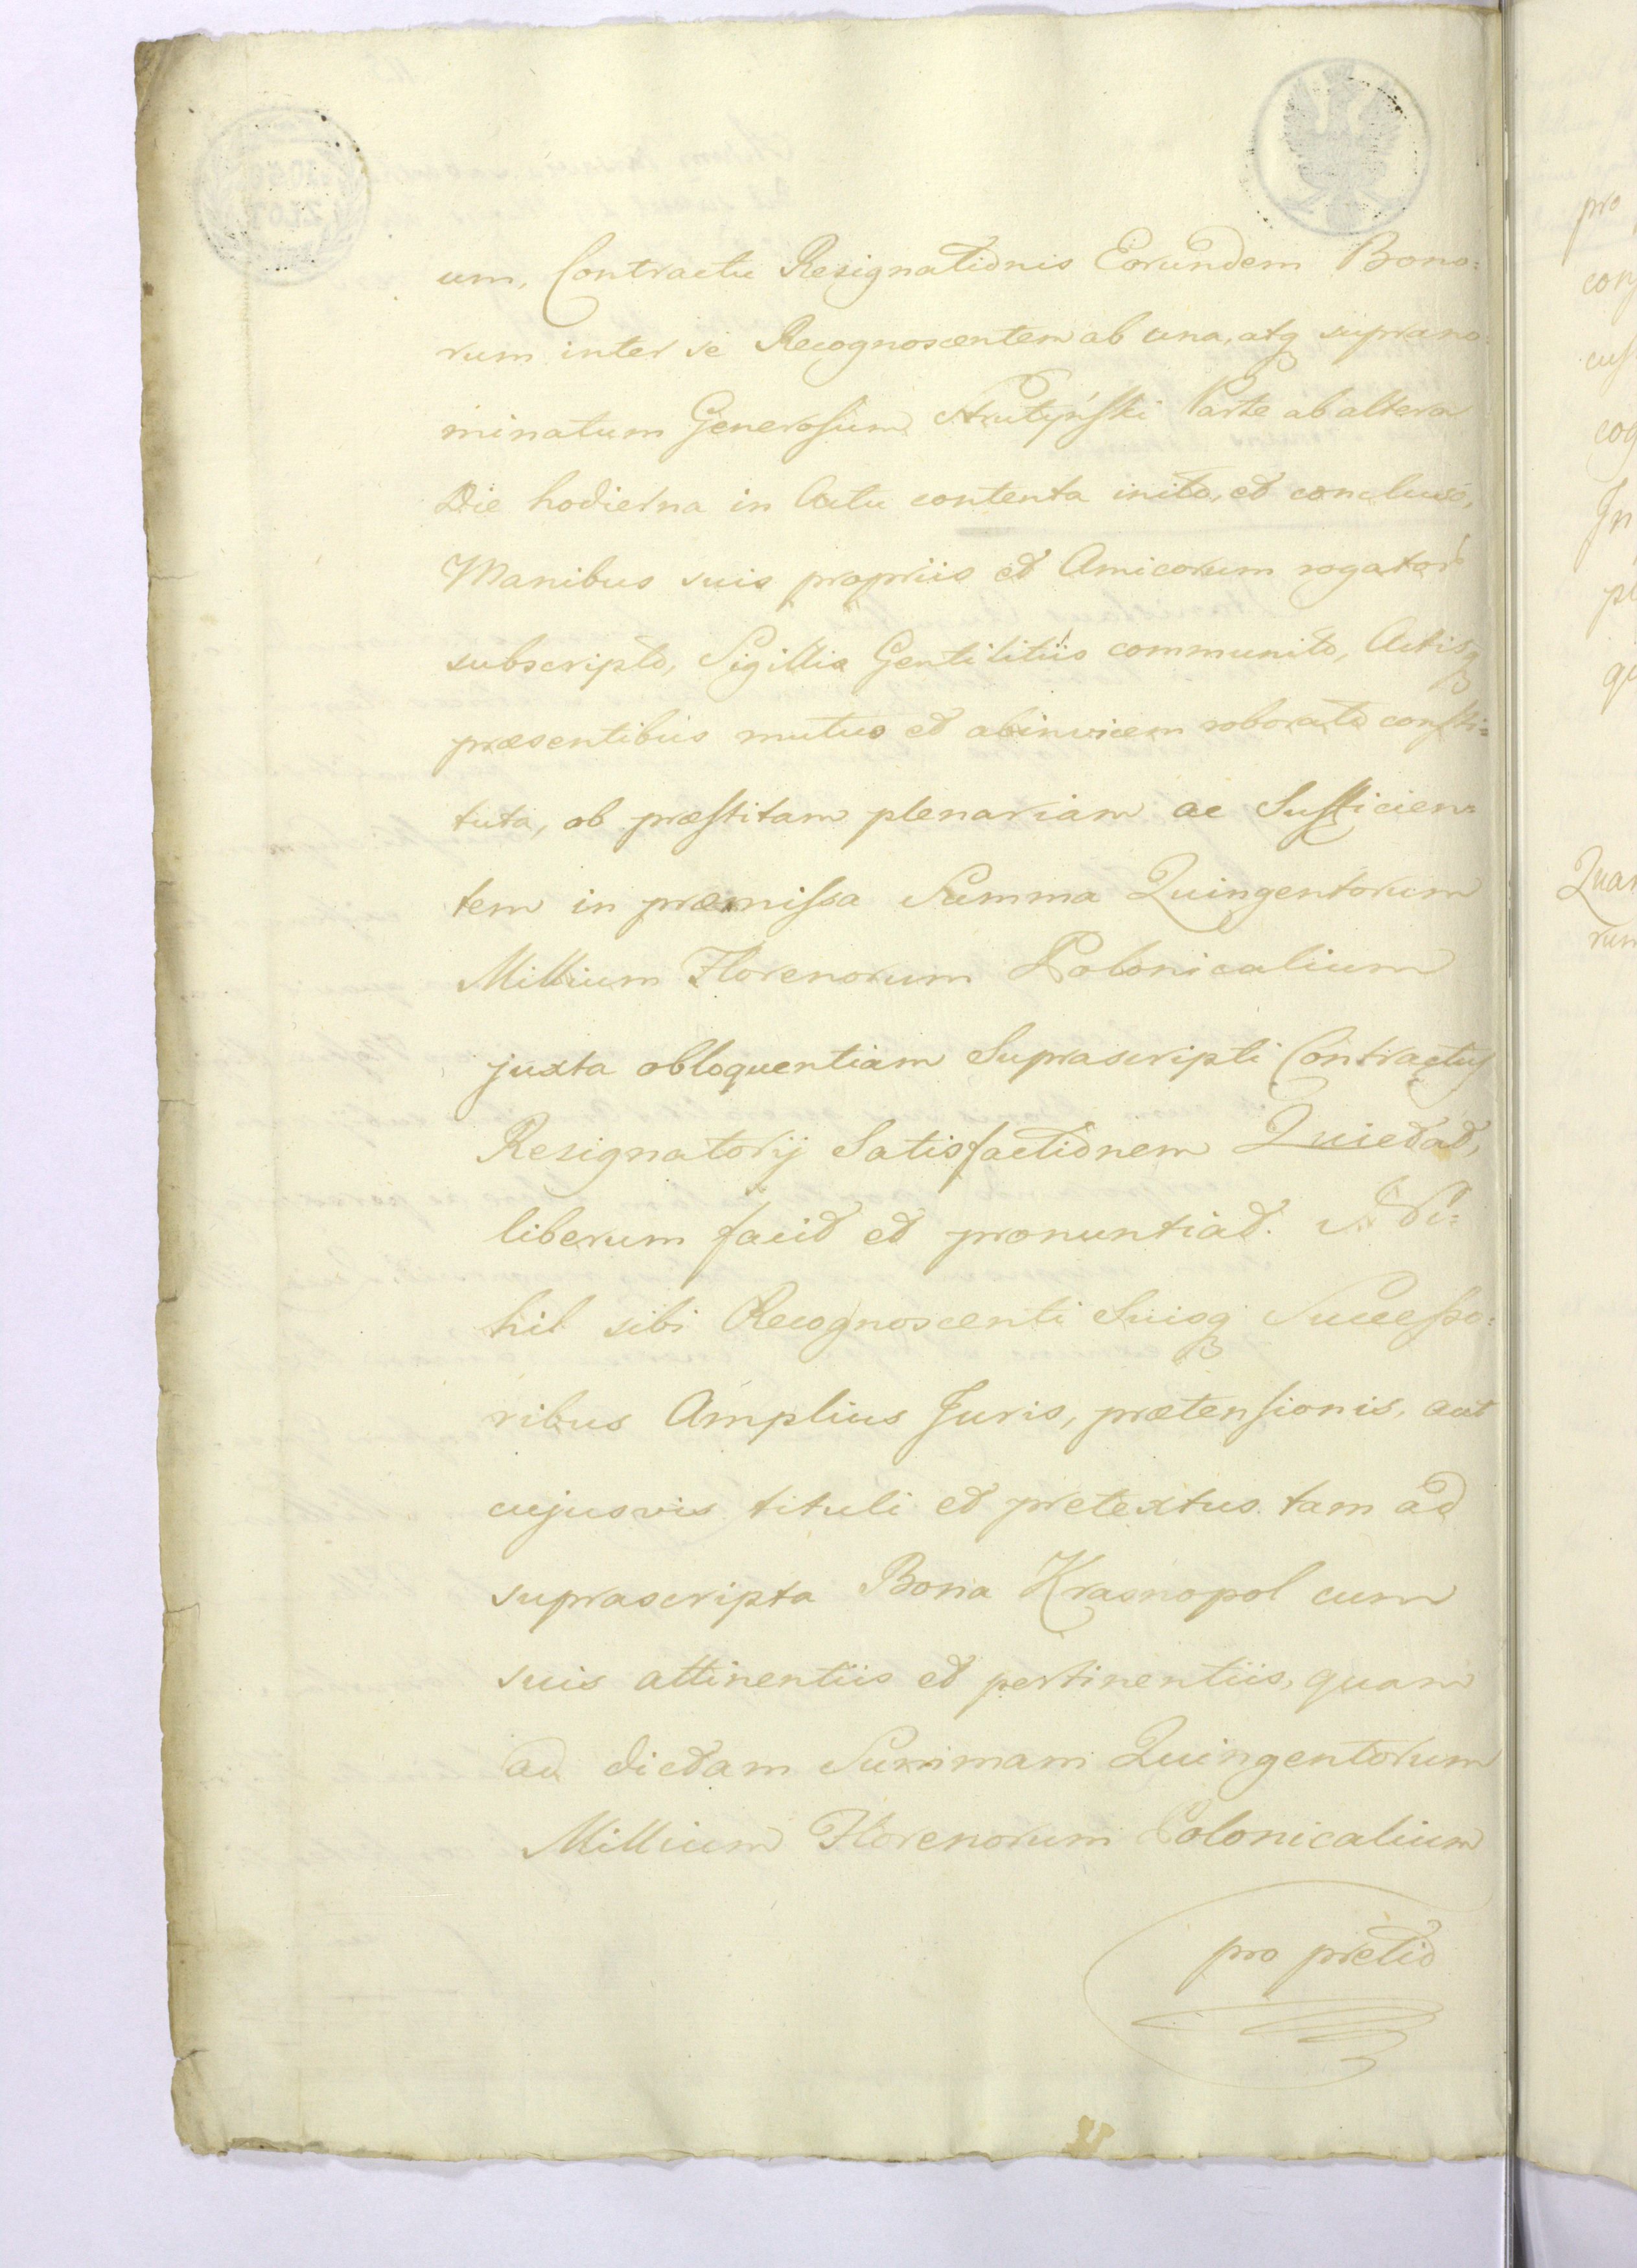 um, Contractu Resignationis Eorundem Bono:
rum inter se Recognoscentem ab una, atq suprano
minatum Generosum Parte ab altera
Die hodierna in Actu contenta inito, et concluso,
Manibus suis propriis et Amicorum rogator
subscripto, Sigillis Gentilitiis communito, Actisq
præsentibus mutuo et abinvicem roborato consti=
tuta, ob præstitam plenariam ac Sufficien=
tem in præmissa Summa Quingentorum
Millium Florenorum Polonicalium
juxta obloquentiam Suprascripti Contractus
Resignatorij Satisfactionem Quietat,
liberum facit et pronuntiat. Ni=
hil sibi Recognoscenti Suisq Successo:
ribus Amplius Juris, prætensionis, aut
cujusvis tituli et pretextus tam ad
suprascripta Bona Krasnopol cum
suis attinentiis et pertinentiis, quam
ad dictam Summam Quingentorum
Millium Florenorum Polonicalium
pro pretio
pro
cog
Jn
Quar
rum